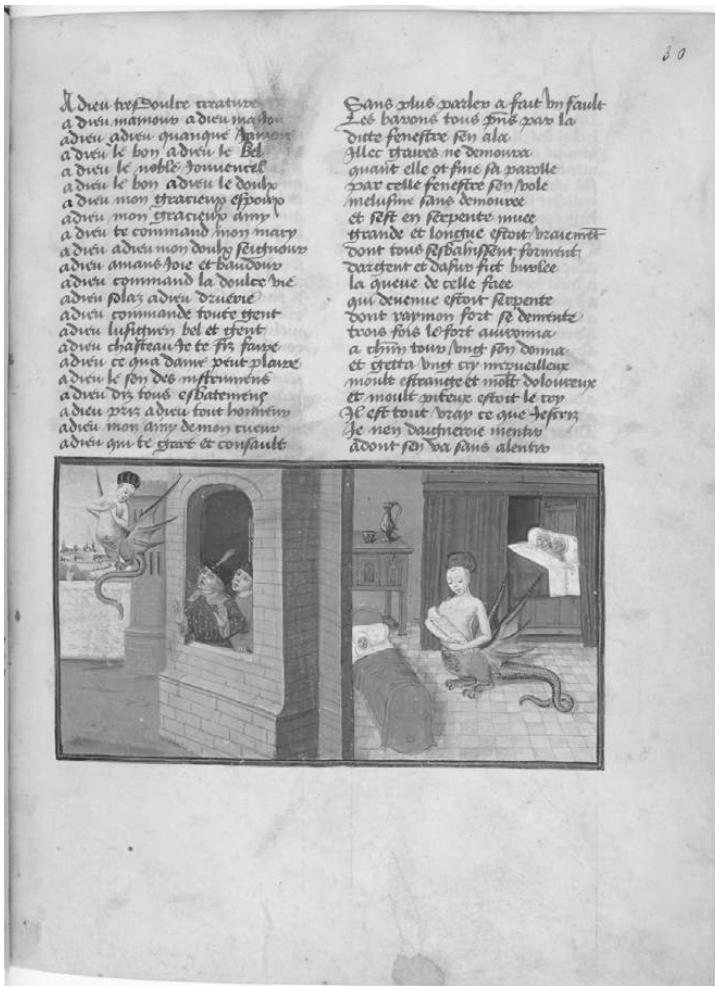 30
A dieu tresdoulce creature
a dieu mamour a dieu ma Joie
adieu adieu quanque Jamoie
a dieu le bon adieu le Bel
a dieu le noble Jouvencel
a dieu le bon adieu le doulx
a dieu mon gracieux espoux
a dieu mon gracieux amy
a dieu te command mon mary
a dieu adieu mon doulx seignour
a dieu amans Joie et baudour
a dieu command la doulce vie
a dieu solaz adieu druerie
a dieu commande toute gent
a dieu lusignen bel et gent
a dieu chasteau Je te fiz faire
a dieu ce qua dame peut plaire
a dieu le son des instrumens
a dieu diz tous esbatemens
a dieu priz adieu tout honneur
a dieu mon amy de mon cueur
a dieu qui te gart et consault
Sans plus parler a fait vn sault
Les barons tous pñs par la
ditte fenestre sen ala
Illec gaires ne demoura
quant elle ot fine sa parolle
par celle fenestre sen vole
melusine sans demouree
et sest en serpente muee
grande et longue estoit vraiemēt
dont tous sesbahissent forment
dargent et dasur fut burlee
la queue de celle faee
qui devenue estoit serpente
dont raymon fort se demente
trois fois le fort auironna
a chūn tour vng son donna
et getta vng cry merueilleux
moult estrange et molt doloureux
et moult piteux estoit le cry
Il est tout vray ce que Jescriz
Je nen daigneroie mentir
adont sen va sans alentir